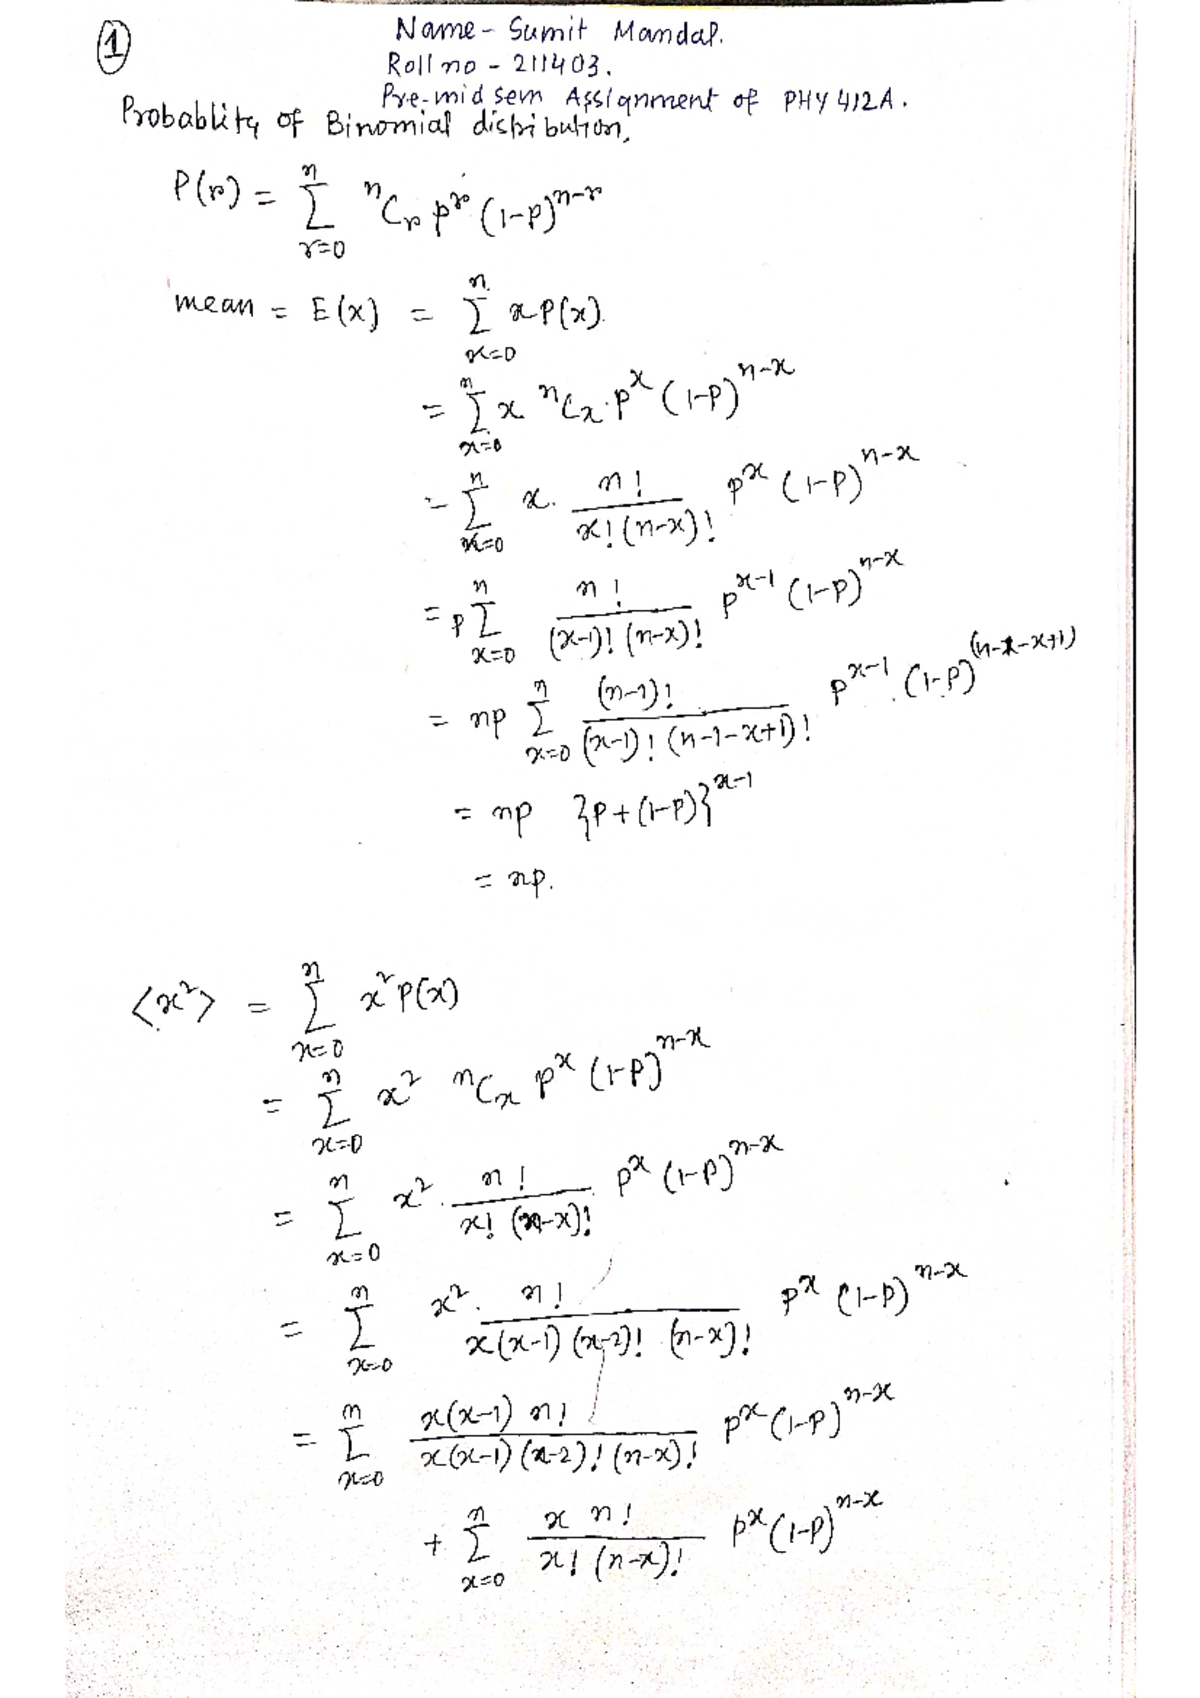 ①
Name - Sumit Mandal.
Roll no - 211403.
Pre-mid sem Assignment of PHY 412A.
Probablity of Binomial distribution,
P(r) = Σ_{r=0}^{n} ⁿC_r p^r (1-p)^{n-r}
mean = E(x) = Σ_{x=0}^{n} x P(x).
= Σ_{x=0}^{n} x ⁿC_x · p^x (1-p)^{n-x}
= Σ_{x=0}^{n} x · n! / (x! (n-x)!) p^x (1-p)^{n-x}
= p Σ_{x=0}^{n} n! / ((x-1)! (n-x)!) p^{x-1} (1-p)^{n-x}
= np Σ_{x=0}^{n} (n-1)! / ((x-1)! (n-1-x+1)!) p^{x-1} (1-p)^{(n-1-x+1)}
= np {p + (1-p)}^{x-1}
= np.
⟨x²⟩ = Σ_{x=0}^{n} x² P(x)
= Σ_{x=0}^{n} x² ⁿC_x p^x (1-p)^{n-x}
= Σ_{x=0}^{n} x² · n! / (x! (n-x)!) p^x (1-p)^{n-x}
= Σ_{x=0}^{n} x² · n! / (x(x-1)(x-2)! (n-x)!) p^x (1-p)^{n-x}
= Σ_{x=0}^{n} x(x-1) n! / (x(x-1)(x-2)! (n-x)!) p^x (1-p)^{n-x}
+ Σ_{x=0}^{n} x n! / (x! (n-x)!) p^x (1-p)^{n-x}